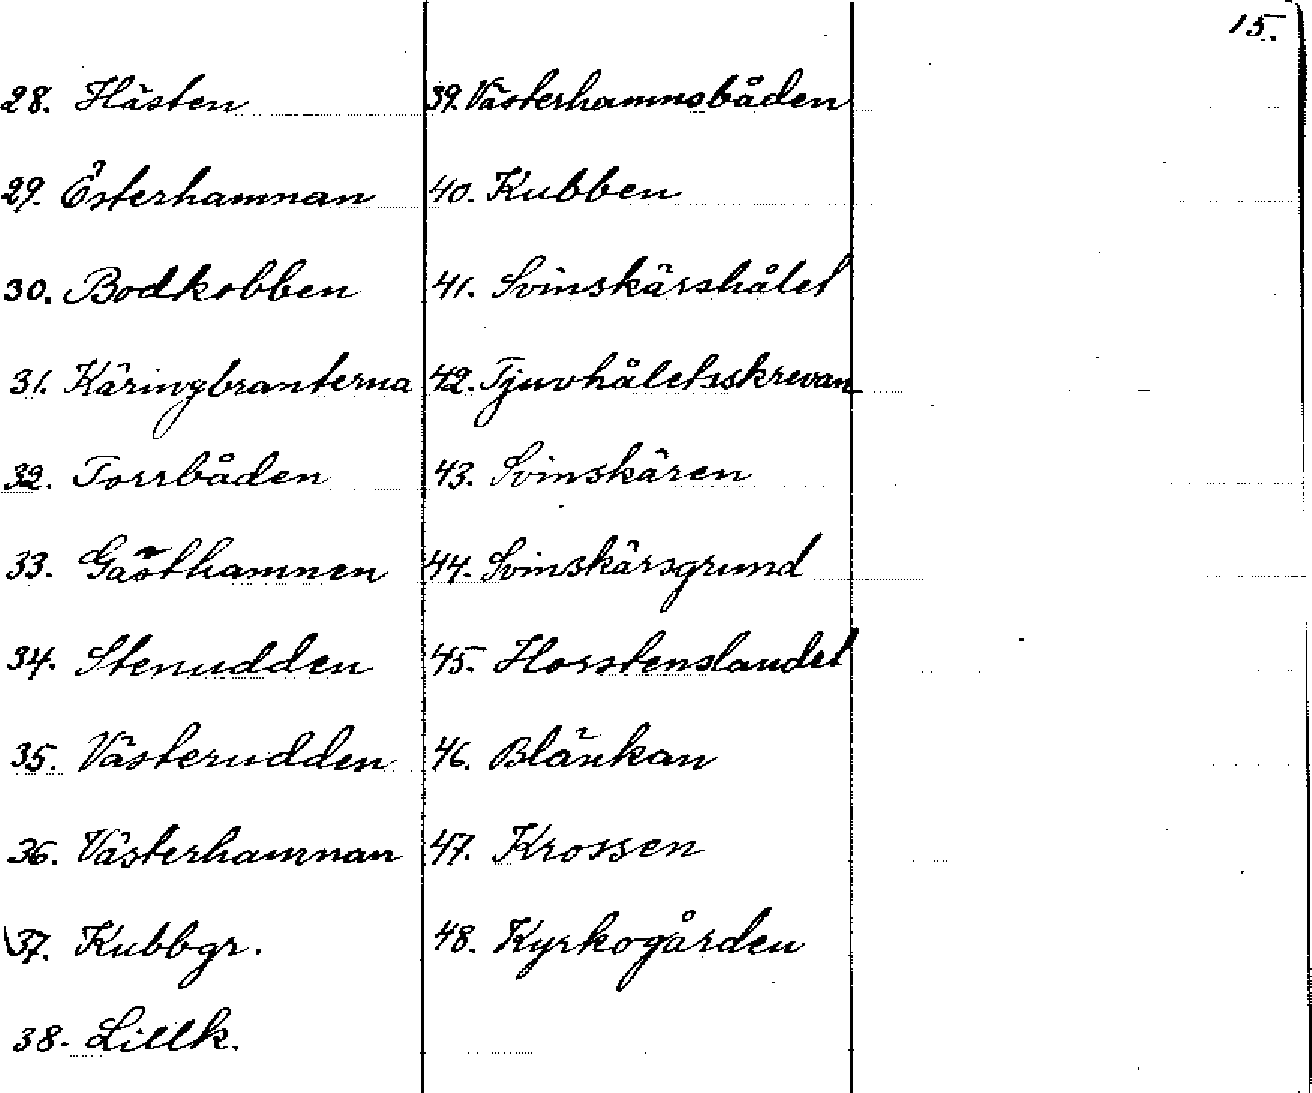 15.
28. Hästen
29. Österhamnan
30. Bodkobben
31. Käringbranterna
32. Torrbåden
33. Gästhamnen
34. Stenudden
35. Västerudden
36. Västerhamnan
37. Kubbgr.
38. Lillk.
39. Västerhamnsbåden
40. Kubben
41. Svinskärshålet
42. Tjuvhåletsskrevan
43. Svinskären
44. Svinskärsgrund
45. Horstenslandet
46. Blänkan
47. Krossen
48. Kyrkogården